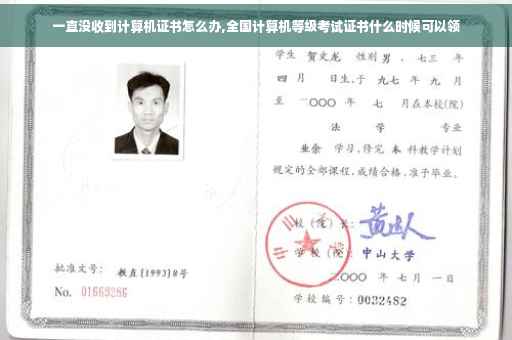 一直没收到计算机证书怎么办,全国计算机等级考试证书什么时候可以领
学生 贺文龙 性别 男 . 七三 年
四 月 日生,于 九七 年 九 月
至 二〇〇〇 年 七 月在本校(院)
法 学 专业
业余 学习,修完 本 科教学计划
规定的全部课程,成绩合格,准予毕业。
校(院)长:
学 校(院): 中山大学
二〇〇〇 年 七 月 一 日
学校编号:0032482
批准文号: 教直(1993)8号
No. 01669286